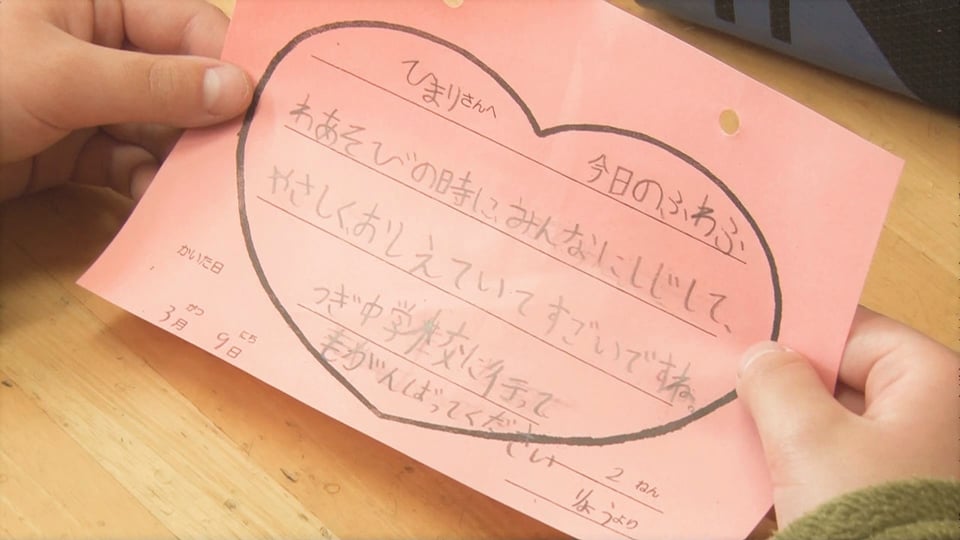 ひまりさんへ
今日の、ふわふ
わあそびの時に、みんなにしじして、
やさしく、おしえていてすごいですね。
つぎ中学校に行って
もがんばってください
かいた日
3月9日
がつ
にち
2ねん
りょうより